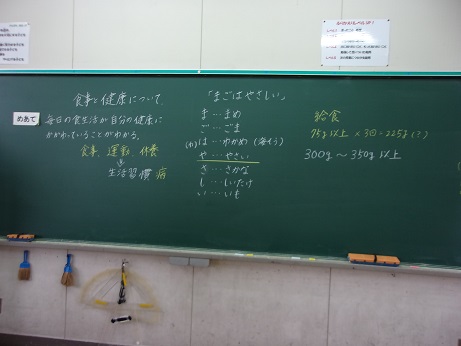 食事と健康について
めあて
毎日の食生活が自分の健康に
かかわっていることがわかる。
食事、運動、休養
生活習慣病
「まごはやさしい」
ま…まめ
ご…ごま
(わ)は…わかめ(海そう)
や…やさい
さ…さかな
し…しいたけ
い…いも
給食
75g以上×3回=225g(?)
300g～350g以上